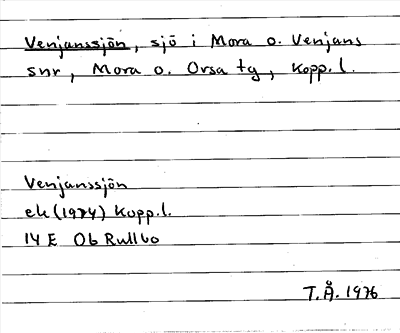 Venjanssjön, sjö i Mora o. Venjans
snr, Mora o. Orsa tg, Kopp. l.
Venjanssjön
ek (1974) Kopp. l.
14 E Ob Rullbo
T.Å. 1976